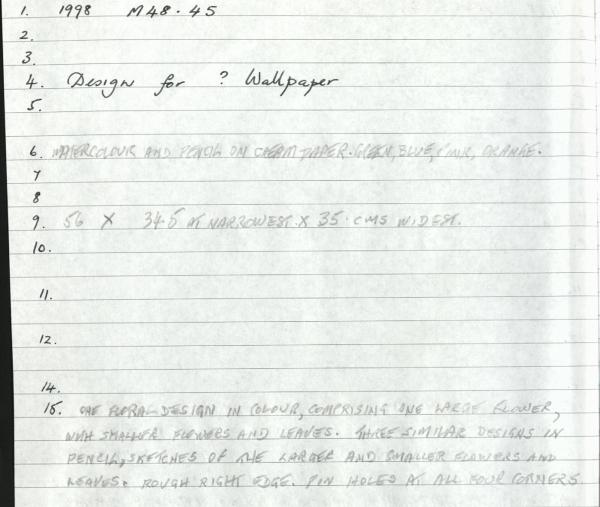 1. 1998 M48.45
2.
3.
4. Design for ? Wallpaper
5.
6. WATERCOLOUR AND PENCIL ON CREAM PAPER. GREEN, BLUE, PINK, ORANGE.
7
8
9. 56 X 34.5 AT NARROWEST X 35. CMS WIDEST.
10.
11.
12.
14.
15. ONE FLORAL DESIGN IN COLOUR, COMPRISING ONE LARGE FLOWER,
WITH SMALLER FLOWERS AND LEAVES. THREE SIMILAR DESIGNS IN
PENCIL, SKETCHES OF THE LARGER AND SMALLER FLOWERS AND
LEAVES. ROUGH RIGHT EDGE. PIN HOLES AT ALL FOUR CORNERS